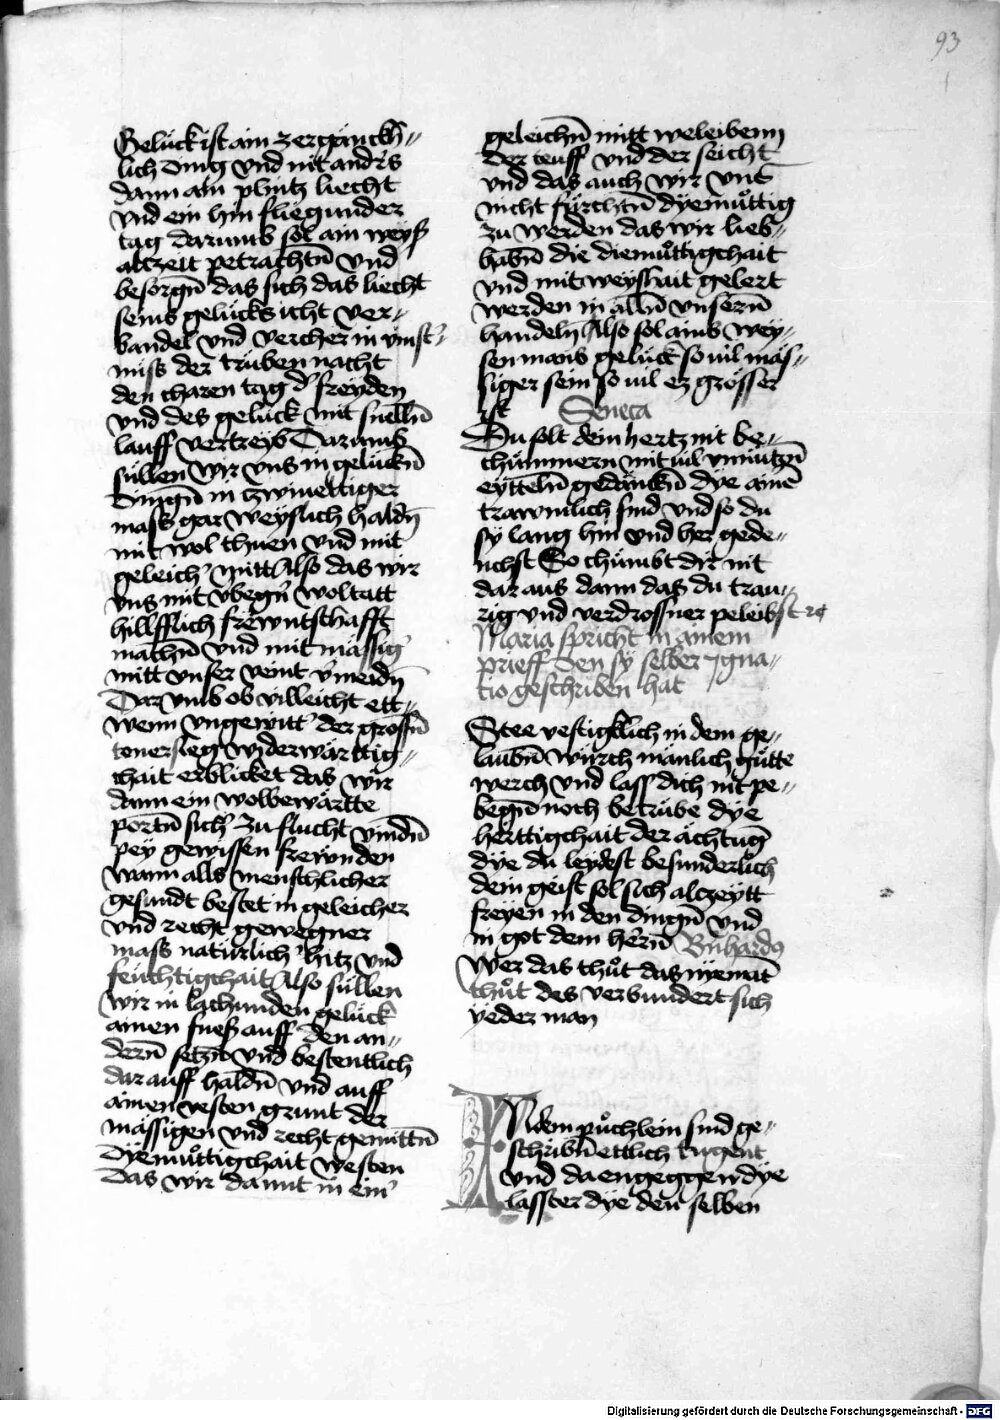 93
Gelück ist ain zergänckh〃
lich ding vnd nit anders
dann ain plintz liecht
vnd ein hin fliegunder
tag darumb sol ain weyß
alczeit petrachtn̄ vnd
besorgn̄ das sich das liecht
seins gelücks icht ver〃
bandel vnd vercher in vinst〃
nuß der trüben nacht
den charen tag d' freyden
vnd des gelück mit snelln̄
lauff vertreyb Darumb
süllen wir vns in gelückn̄
dingn̄ in tzwiueltiger
mass gar weyslich haldn̄
mit wol thuen vnd mit
geleich' mitt Also das wir
vns mit vbegn' woltatt
hillfflich frewntschafft
machn̄ vnd mit mässig'
mitt vnser veint v'meidn̄
Dar vmb ob villeicht ett〃
wenn vngewitt' der grossn̄
widerwärttig〃
chait erblicket das wir
dann ein wolbewärtte
portn̄ sich' zu flucht vindn̄
pey gewissen frewnden
wann alls menschlicher
gesundt bestet in geleicher
vnd recht gewegner
mass natürlich' hitz vnd
feuchtigchait Also süllen
wir in lachunden gelück
ainen fueß auff den an〃
dern̄ setzn̄ vnd bestentlich
dar auff haldn̄ vnd auff
ainen vesten grunt der
mässigen vnd recht gemuttn̄
dyemüttigchait westen
Das wir damit in ein'
geleichn̄ mitt weleibenn
der teuff vnd der seicht
vnd das auch wir vns
nicht fürchtn̄ dyemüttig
zu werden das wir lieb〃
habn̄ die diemüttigchait
vnd mit weyshait gelert
werden in alln̄ vnsern̄
handeln Also sol ains wey〃
sen mans gelück so uil mäs〃
siger sein so uil ez grösser
ist Seneca
Du solt dein hertz nit be〃
chümmern mit uil vnnützn̄
eytteln̄ gedänckn̄ dye ainē
trawmlich sind vnd so du
sy lang hin vnd her gede〃
nchst So chümbt dir nit
dar aus dann das du trau〃
rig vnd verdrossner peleibst
Maria spricht in ainem
prieff den sy selber Igna〃
tio geschriben hat
Stee vestigklich in dem ge〃
laubn̄ würch mänlich gütte
werch vnd lass dich nit pe〃
begn̄ noch betrübe dye
herttigchait der ächtūg
dye du leydest besunderlich
dem geist sol sich alczeytt
freyen in den dingn̄ vnd
in got dem hern̄ Bn̄hardꝰ
Wer das thůt das nyemāt
thůt des verbundert sich
yeder man
IN dem půchlein sind ge〃
schribn̄ ettlich tugent
vnd da engeggen dye
lasster dye den selben
Digitalisierung gefördert durch die Deutsche Forschungsgemeinschaft - DFG